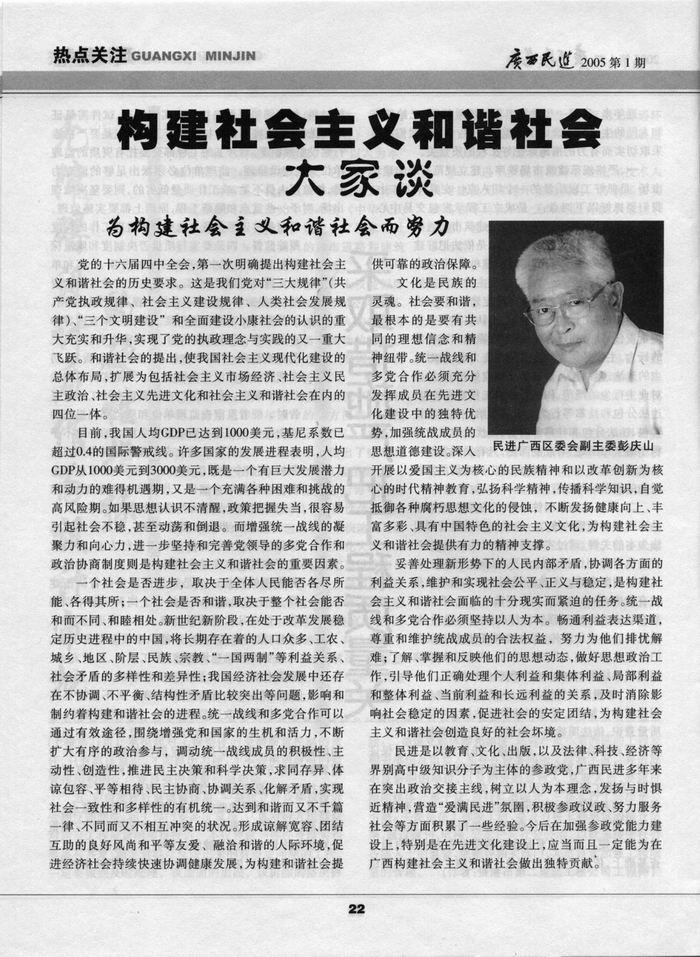 热点关注 GUANGXI MINJIN
广西民进 2005 第 1 期
构建社会主义和谐社会
大家谈
为构建社会主义和谐社会而努力
党的十六届四中全会,第一次明确提出构建社会主
义和谐社会的历史要求。这是我们党对“三大规律”(共
产党执政规律、社会主义建设规律、人类社会发展规
律)、“三个文明建设” 和全面建设小康社会的认识的重
大充实和升华,实现了党的执政理念与实践的又一重大
飞跃。和谐社会的提出,使我国社会主义现代化建设的
总体布局,扩展为包括社会主义市场经济、社会主义民
主政治、社会主义先进文化和社会主义和谐社会在内的
四位一体。
目前,我国人均GDP已达到1000美元,基尼系数已
超过0.4的国际警戒线。许多国家的发展进程表明,人均
GDP从1000美元到3000美元,既是一个有巨大发展潜力
和动力的难得机遇期,又是一个充满各种困难和挑战的
高风险期。如果思想认识不清醒,政策把握失当,很容易
引起社会不稳,甚至动荡和倒退。而增强统一战线的凝
聚力和向心力,进一步坚持和完善党领导的多党合作和
政治协商制度则是构建社会主义和谐社会的重要因素。
一个社会是否进步，取决于全体人民能否各尽所
能、各得其所;一个社会是否和谐,取决于整个社会能否
和而不同、和睦相处。新世纪新阶段,在处于改革发展稳
定历史进程中的中国,将长期存在着的人口众多、工农、
城乡、地区、阶层、民族、宗教、“一国两制”等利益关系、
社会矛盾的多样性和差异性;我国经济社会发展中还存
在不协调、不平衡、结构性矛盾比较突出等问题,影响和
制约着构建和谐社会的进程。统一战线和多党合作可以
通过有效途径,围绕增强党和国家的生机和活力,不断
扩大有序的政治参与，调动统一战线成员的积极性、主
动性、创造性,推进民主决策和科学决策,求同存异、体
谅包容、平等相待、民主协商、协调关系、化解矛盾,实现
社会一致性和多样性的有机统一。达到和谐而又不千篇
一律、不同而又不相互冲突的状况。形成谅解宽容、团结
互助的良好风尚和平等友爱、融洽和谐的人际环境,促
进经济社会持续快速协调健康发展,为构建和谐社会提
供可靠的政治保障。
文化是民族的
灵魂。社会要和谐,
最根本的是要有共
同的理想信念和精
神纽带。统一战线和
多党合作必须充分
发挥成员在先进文
化建设中的独特优
势,加强统战成员的
思想道德建设。深入
民进广西区委会副主委彭庆山
开展以爱国主义为核心的民族精神和以改革创新为核
心的时代精神教育,弘扬科学精神,传播科学知识,自觉
抵御各种腐朽思想文化的侵蚀，不断发扬健康向上、丰
富多彩、具有中国特色的社会主义文化,为构建社会主
义和谐社会提供有力的精神支撑。
妥善处理新形势下的人民内部矛盾,协调各方面的
利益关系,维护和实现社会公平、正义与稳定,是构建社
会主义和谐社会面临的十分现实而紧迫的任务。统一战
线和多党合作必须坚持以人为本。畅通利益表达渠道,
尊重和维护统战成员的合法权益，努力为他们排忧解
难;了解、掌握和反映他们的思想动态,做好思想政治工
作,引导他们正确处理个人利益和集体利益、局部利益
和整体利益、当前利益和长远利益的关系,及时消除影
响社会稳定的因素,促进社会的安定团结,为构建社会
主义和谐社会创造良好的社会环境。
民进是以教育、文化、出版,以及法律、科技、经济等
界别高中级知识分子为主体的参政党,广西民进多年来
在突出政治交接主线,树立以人为本理念,发扬与时俱
近精神,营造“爱满民进”氛围,积极参政议政、努力服务
社会等方面积累了一些经验。今后在加强参政党能力建
设上,特别是在先进文化建设上,应当而且一定能为在
广西构建社会主义和谐社会做出独特贡献。
22